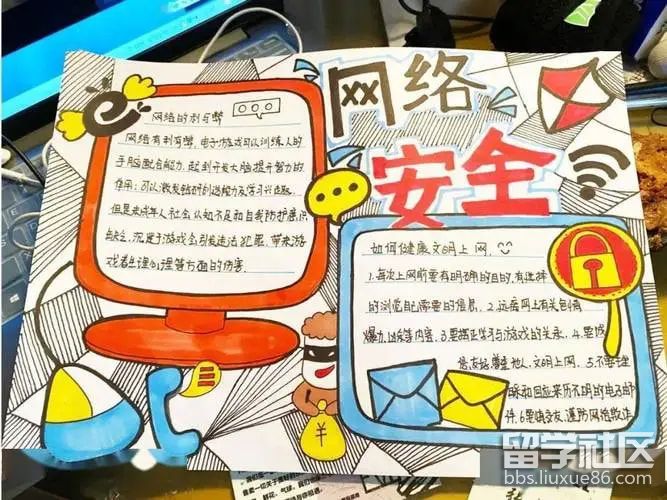 网络安全
网络的利与弊
网络有利有弊,电子游戏可以训练人的
手脑配合能力,起到开发大脑提升智力的
作用;可以激发创造能力及学习兴趣
但是未成年人社会认知不足和自我防护意识
缺乏,沉迷于游戏会引发违法犯罪,带来游
戏者生理心理等方面的伤害.
如何健康文明上网.
1.每次上网前要有明确的目的,有选择
的浏览自己需要的信息.2.远离网上有关色情
暴力,凶杀等内容.3.要摆正学习与游戏的关系.4.要
尊重他人,文明上网.5.不要
和回应来历不明的电子邮
件.6.要谨防网络
¥
留学社区
bbs.liuxue86.com